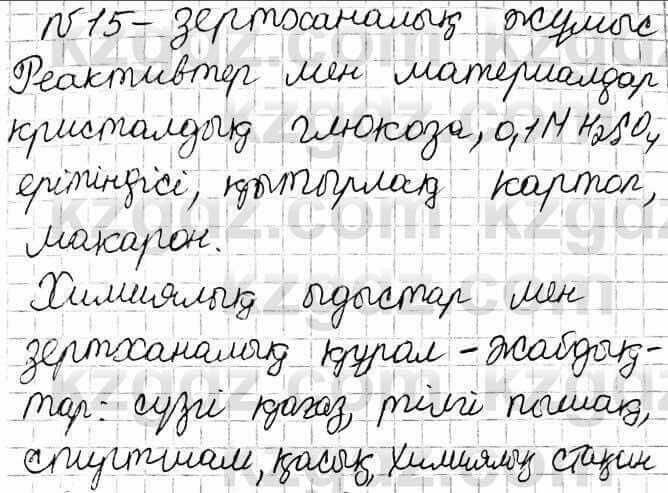 №15 - зертханалық жұмыс
Реактивтер мен материалдар
кристалдық глюкоза, 0,1M H₂SO₄
ерітіндісі, қытырлақ картоп,
макарон.
Химиялық ыдыстар мен
зертханалық құрал - жабдық-
тар: сүзгі қағаз, тілгі пышақ,
спиртшам, қасық, химиялық стақан
kzgdz.com